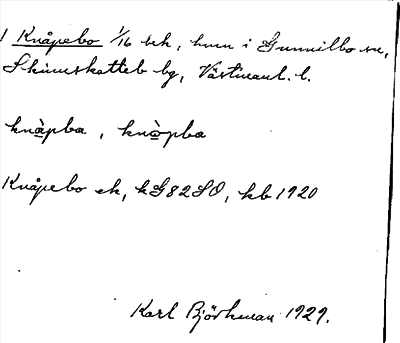 1 Knåpebo 1/16 sek, hmn i Gunnilbo sn,
Skinnskatteb bg, Västmanl. l.
knàpba, knòpba
Knåpebo ek, kG82SO, kb 1920
Karl Björkman 1929.